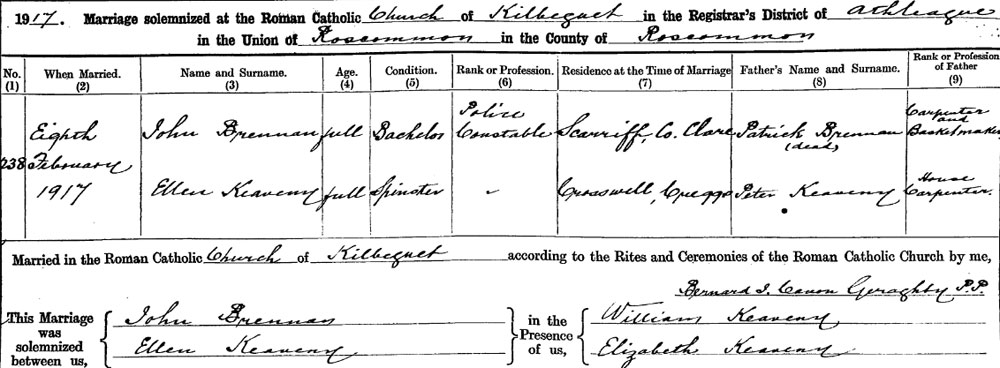 1917. Marriage solemnized at the Roman Catholic Church of Kilbeguet in the Registrar's District of Athleague
in the Union of Roscommon in the County of Roscommon
No. (1) When Married. (2) Name and Surname. (3) Age. (4) Condition. (5) Rank or Profession. (6) Residence at the Time of Marriage (7) Father's Name and Surname. (8) Rank or Profession of Father (9)
238 Eighth February 1917
John Brennan full Bachelor Police Constable Scarriff, Co. Clare Patrick Brennan (dead) Carpenter and Basketmaker
Ellen Keaveny full Spinster Crosswell, Creggs Peter Keaveny House Carpenter.
Married in the Roman Catholic Church of Kilbeguet according to the Rites and Ceremonies of the Roman Catholic Church by me,
Bernard J. Canon Geraghty P.P.
This Marriage was solemnized between us,
John Brennan
Ellen Keaveny
in the Presence of us,
William Keaveny
Elizabeth Keaveny